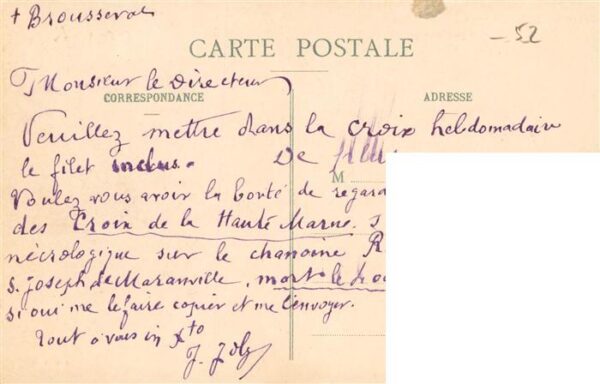 + Brousseval
- 52
CARTE POSTALE
Monsieur le Directeur
CORRESPONDANCE
ADRESSE
Veuillez mettre dans la Croix hebdomadaire
le filet inclus.
De
M
Voulez vous avoir la bonté de regard
des Croix de la Haute Marne. s
nécrologique sur le chanoine R
S. Joseph de Maranville, mort le
si oui me le faire copier et me l'envoyer.
Tout à vous in Xto
J.